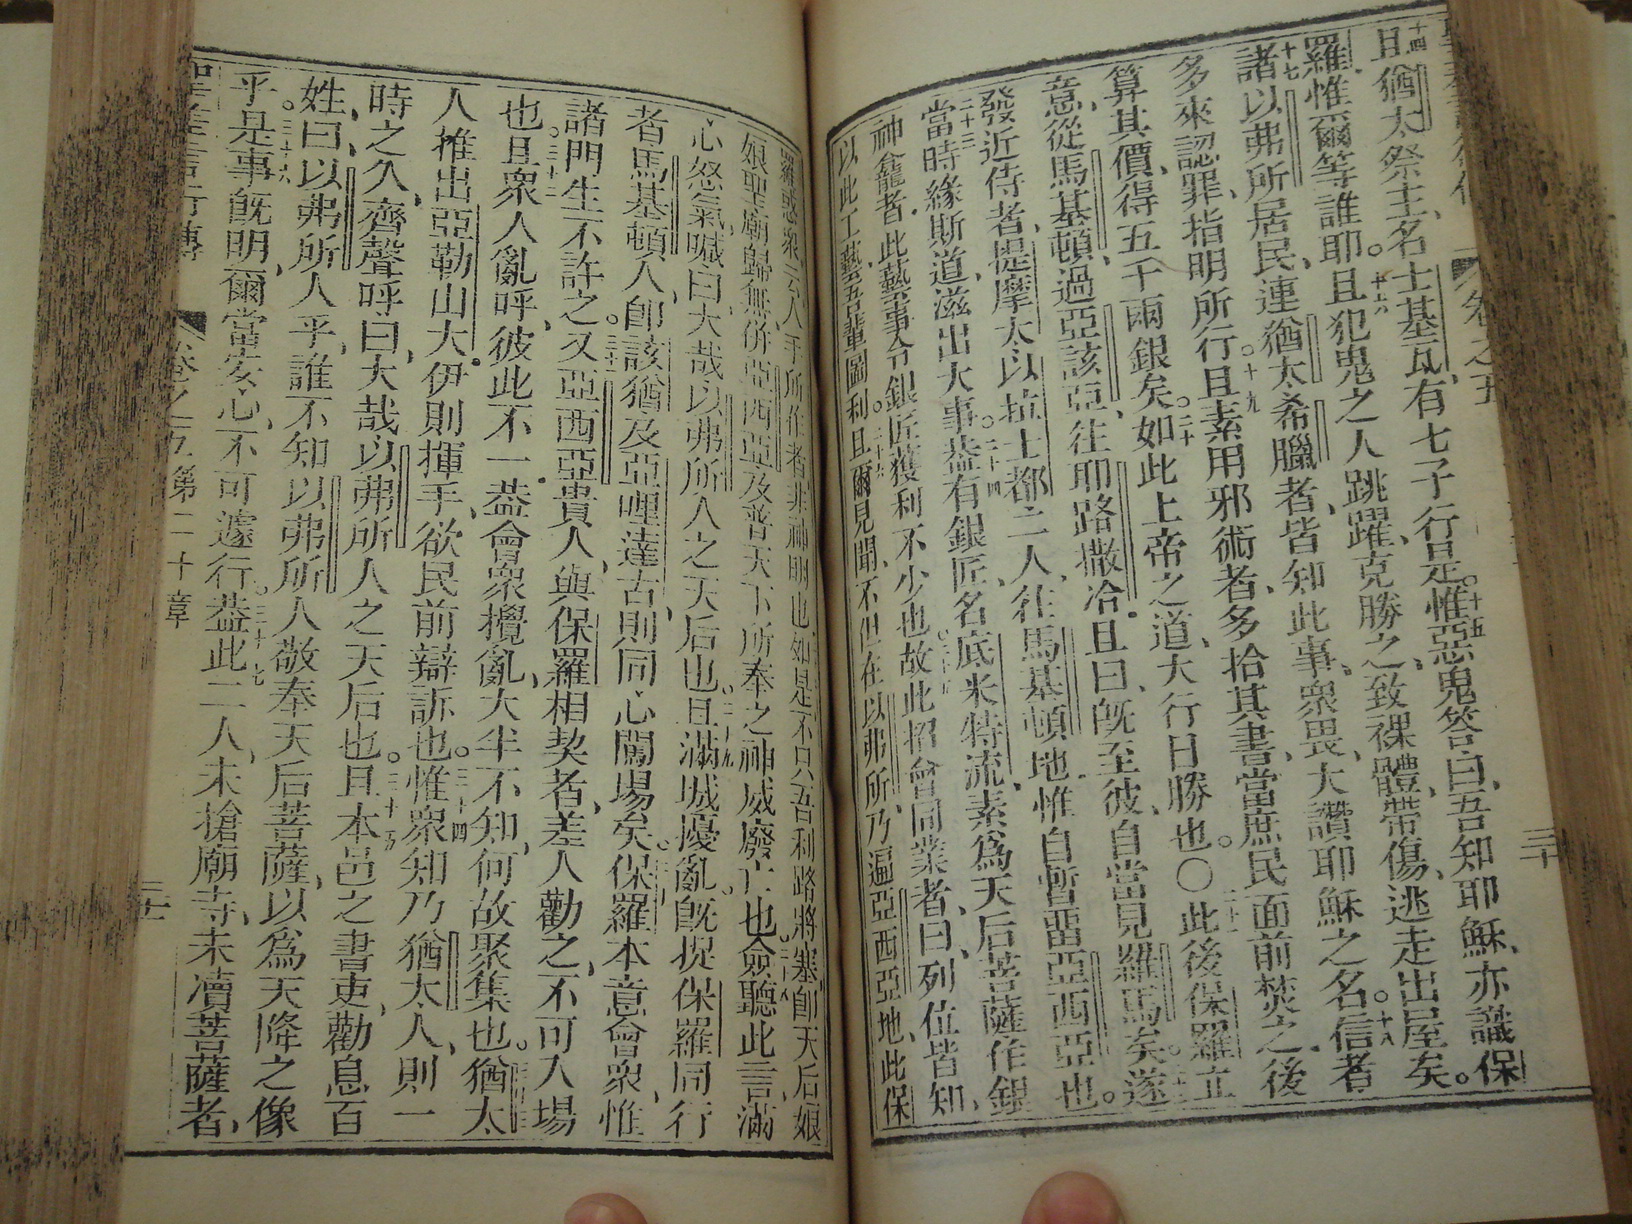 且猶太祭主、名士基瓦、有七子行是。十五惟惡鬼答曰、吾知耶穌、亦識保
羅、惟爾等誰耶。十六且犯鬼之人、跳躍、克勝之、致裸體帶傷、逃走出屋矣。
十七諸以弗所居民、連猶太希臘者、皆知此事、衆畏、大讚耶穌之名。十八信者
多來認罪、指明所行。十九且素用邪術者、多拾其書、當庶民面前焚之、後
算其價、得五千兩銀矣。二十如此上帝之道、大行日勝也。〇此後保羅立
意、從馬基頓、過亞該亞、往耶路撒冷。且曰、旣至彼、自當見羅馬矣。遂
發近侍者、提摩太以拉士都二人、往馬基頓地、惟自暫畱亞西亞也。
二十三當時緣斯道、滋出大事。二十四蓋有銀匠、名底米特流、素爲天后菩薩作銀
神龕者、此藝事令銀匠獲利不少也。故此招會同業者、曰、列位皆知、
以此工藝、吾輩圖利。二十六且爾見聞、不但在以弗所、乃遍亞西亞地、此保
羅惑衆、云、人手所作者、非神明也。如是不只吾利路將塞、卽天后娘
娘聖廟歸無、併亞西亞及普天下所奉之神威廢亡也。二十八僉聽此言、滿
心怒氣、喊曰、大哉以弗所人之天后也。二十九且滿城擾亂。旣捉保羅同行
者、馬基頓人、卽該猶及亞哩達古、則同心闖場矣。三十保羅本意會衆、惟
諸門生不許之。三十一又亞西亞貴人、與保羅相契者、差人勸之、不可入場
也。三十二且衆人亂呼、彼此不一、蓋會衆攪亂、大半不知、何故聚集也。三十三猶太
人推出亞勒山大。伊則揮手、欲民前辯訴也。三十四惟衆知乃猶太人、則一
時之久、齊聲呼曰、大哉以弗所人之天后也。三十五且本邑之書吏、勸息百
姓、曰、以弗所人乎、誰不知以弗所人敬奉天后菩薩、以爲天降之像
乎。三十六是事旣明、爾當安心、不可遽行。三十七蓋此二人、未搶廟寺、未瀆菩薩者、
卷之五第二十章